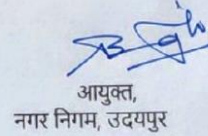 आयुक्त,
नगर निगम, उदयपुर